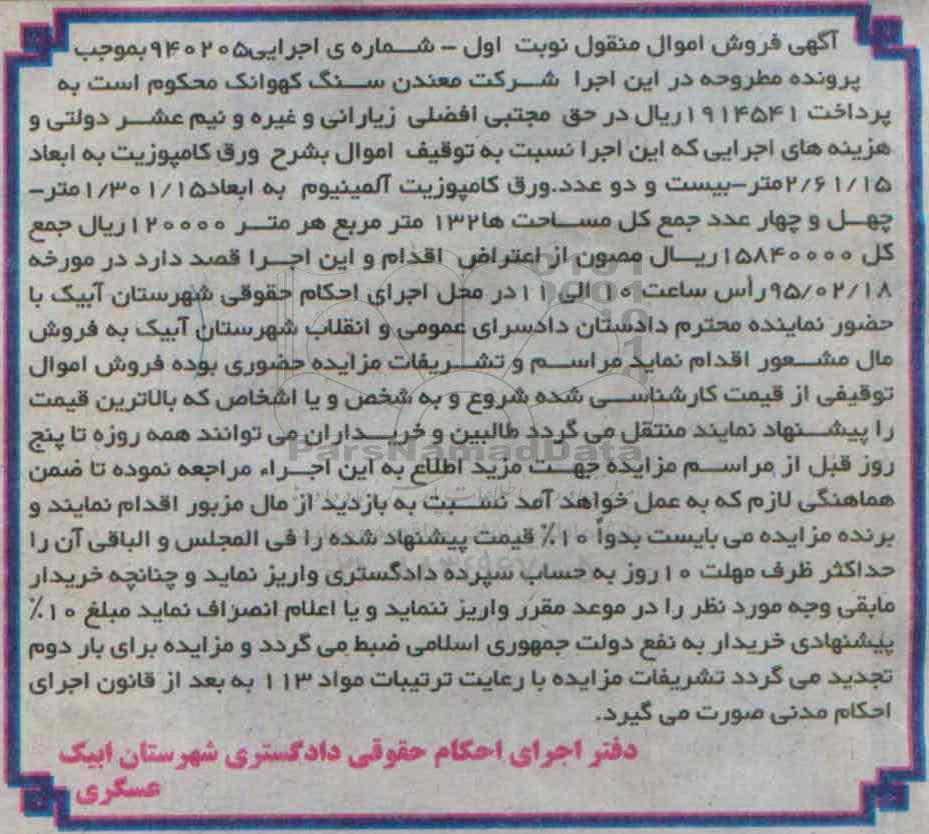 آگهی فروش اموال منقول نوبت اول - شماره ی اجرایی۹۴۰۲۰۵بموجب
پرونده مطروحه در این اجرا شرکت معندن سنگ کهوانک محکوم است به
پرداخت ۱۹۱۴۵۴۱ریال در حق مجتبی افضلی زیارانی و غیره و نیم عشر دولتی و
هزینه های اجرایی که این اجرا نسبت به توقیف اموال بشرح ورق کامپوزیت به ابعاد
۲/۶۱/۱۵متر-بیست و دو عدد.ورق کامپوزیت آلمینیوم به ابعاد۱/۳۰۱/۱۵متر-
چهل و چهار عدد جمع کل مساحت ها۱۳۲ متر مربع هر متر ۱۲۰۰۰۰ریال جمع
کل ۱۵۸۴۰۰۰۰ریال مصون از اعتراض اقدام و این اجرا قصد دارد در مورخه
۹۵/۰۲/۱۸رأس ساعت ۱۰ الی ۱۱در محل اجرای احکام حقوقی شهرستان آبیک با
حضور نماینده محترم دادستان دادسرای عمومی و انقلاب شهرستان آبیک به فروش
مال مشعور اقدام نماید مراسم و تشریفات مزایده حضوری بوده فروش اموال
توقیفی از قیمت کارشناسی شده شروع و به شخص و یا اشخاص که بالاترین قیمت
را پیشنهاد نمایند منتقل می گردد طالبین و خریداران می توانند همه روزه تا پنج
روز قبل از مراسم مزایده جهت مزید اطلاع به این اجراء مراجعه نموده تا ضمن
هماهنگی لازم که به عمل خواهد آمد نسبت به بازدید از مال مزبور اقدام نمایند و
برنده مزایده می بایست بدواً ۱۰٪ قیمت پیشنهاد شده را فی المجلس و الباقی آن را
حداکثر ظرف مهلت ۱۰روز به حساب سپرده دادگستری واریز نماید و چنانچه خریدار
مابقی وجه مورد نظر را در موعد مقرر واریز ننماید و یا اعلام انصراف نماید مبلغ ۱۰٪
پیشنهادی خریدار به نفع دولت جمهوری اسلامی ضبط می گردد و مزایده برای بار دوم
تجدید می گردد تشریفات مزایده با رعایت ترتیبات مواد ۱۱۳ به بعد از قانون اجرای
احکام مدنی صورت می گیرد.
دفتر اجرای احکام حقوقی دادگستری شهرستان ابیک
عسگری
ParsNamadData